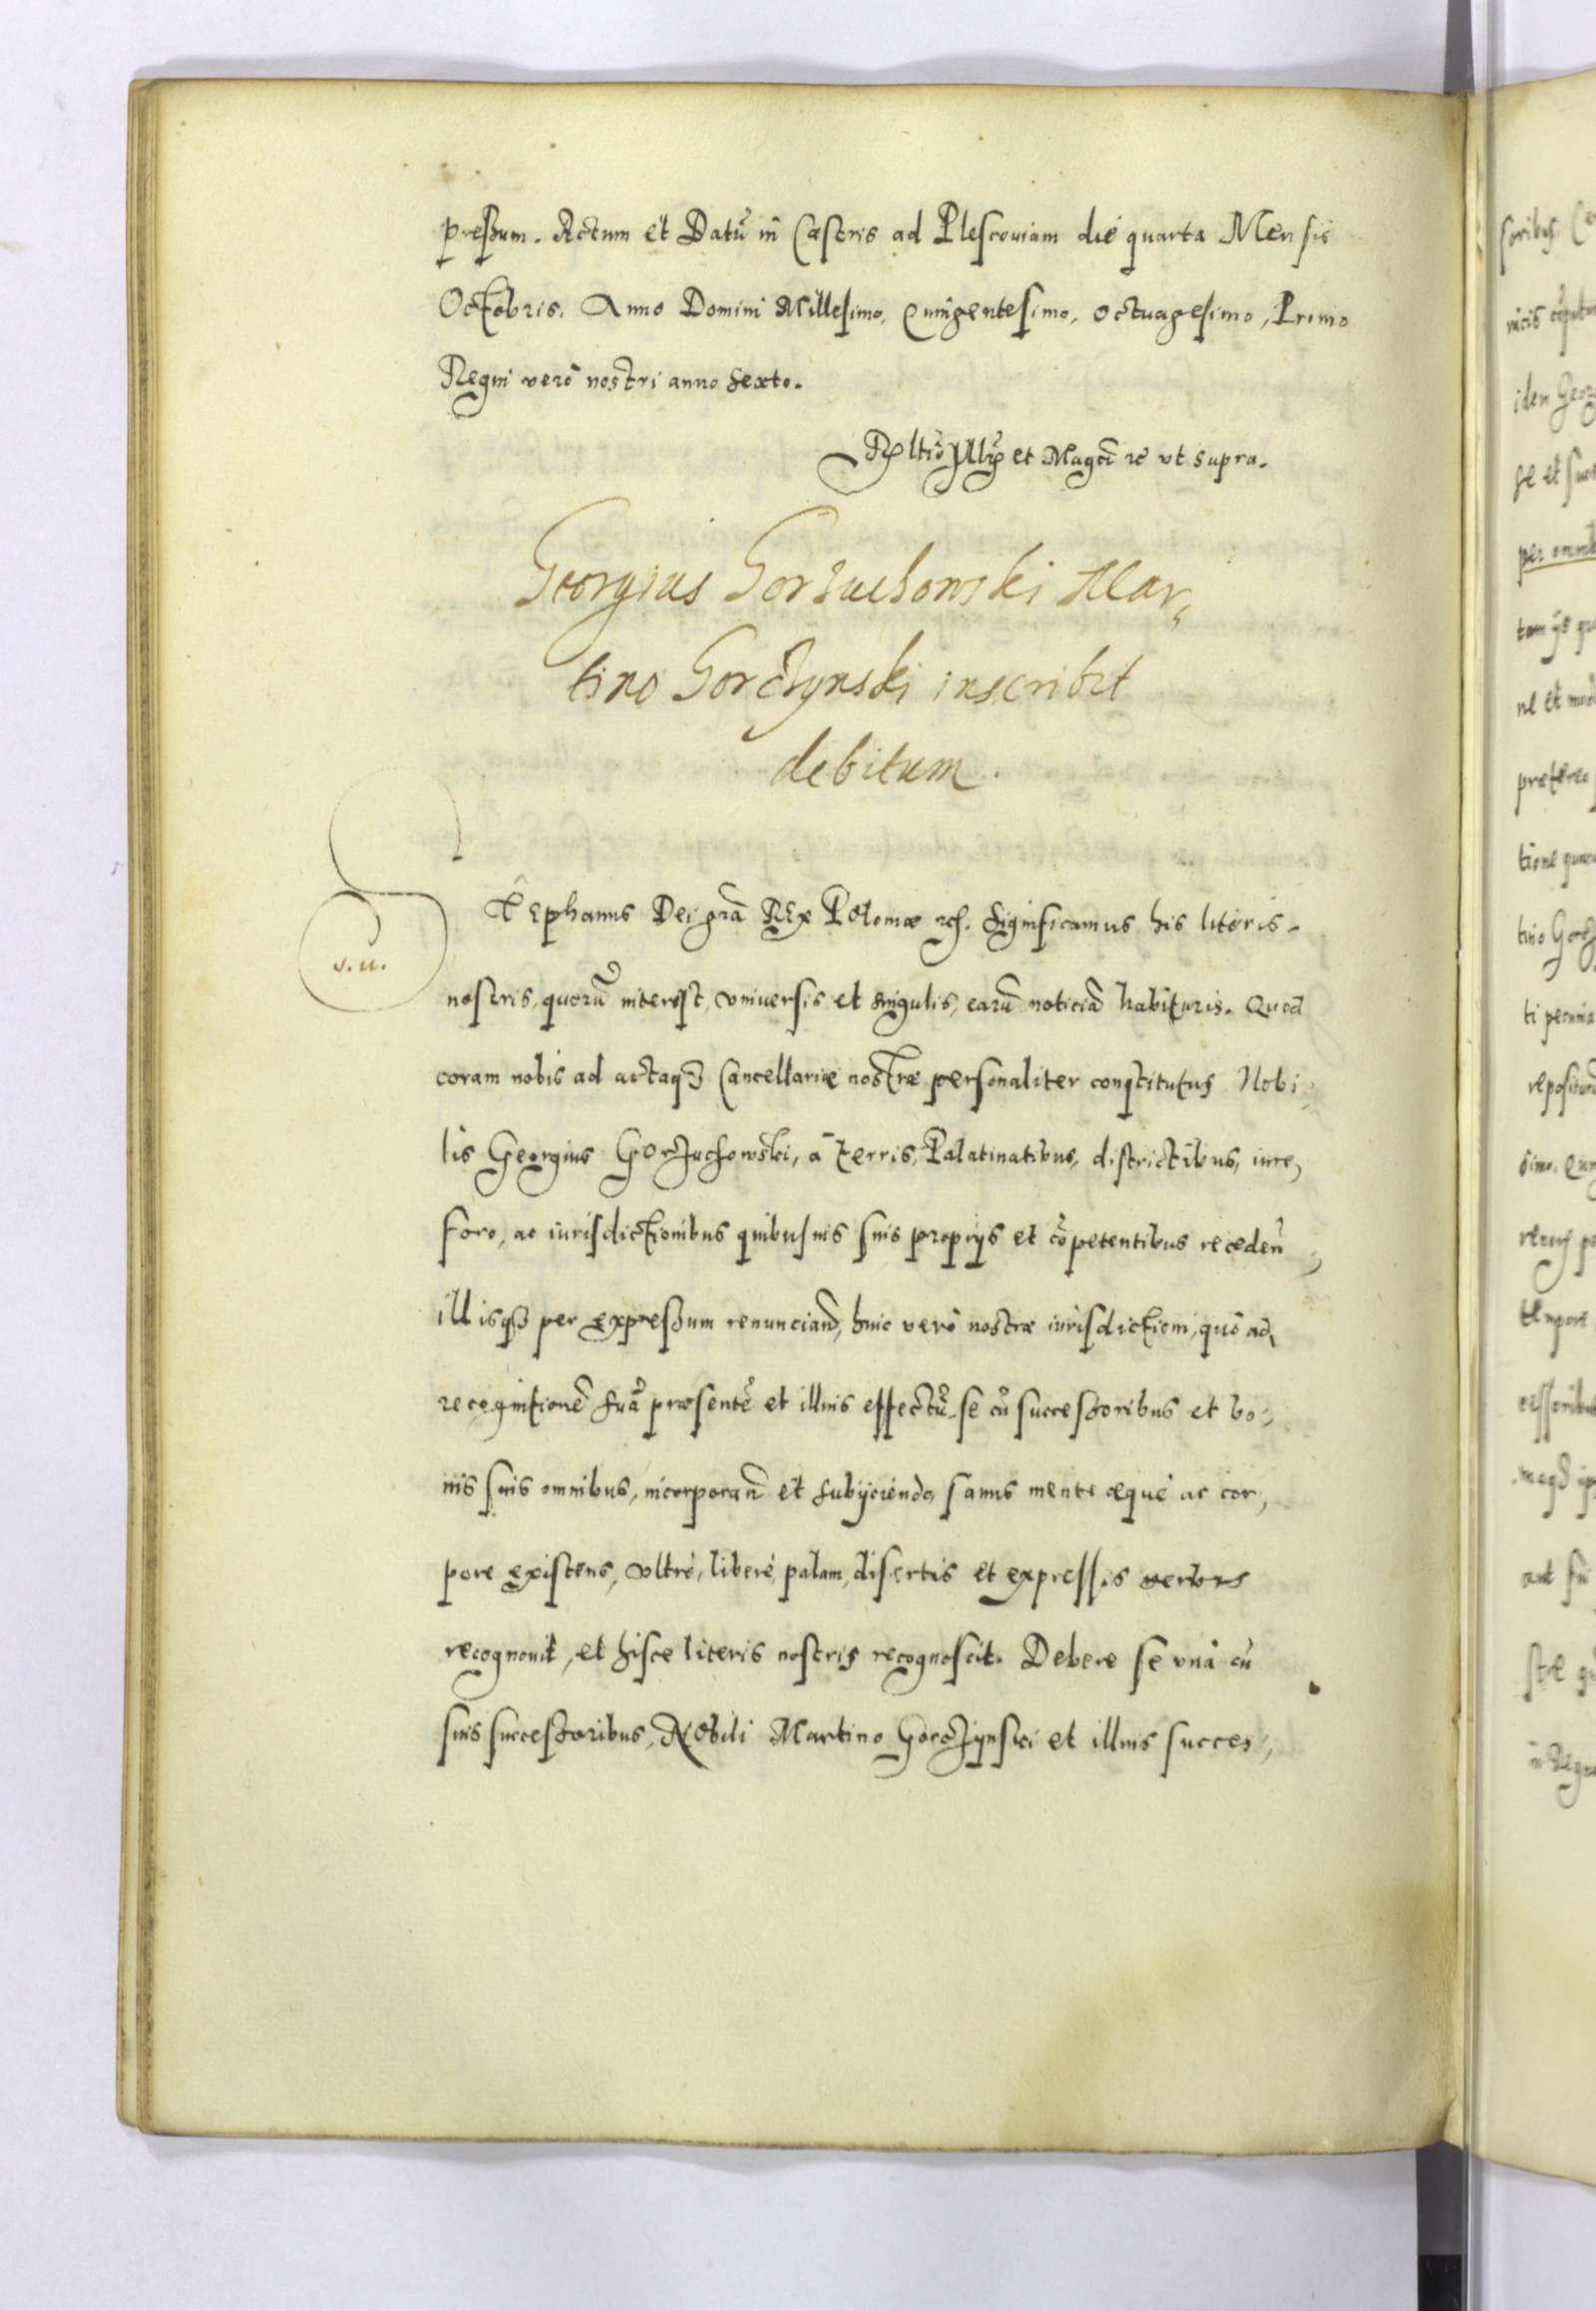 preßum. Actum et Datũ in Castris ad Plescouiam die quarta Mensis
Octobris. Anno Domini Millesimo, Quingentesimo, Octuagesimo, Primo
Regni verò nostri anno Sexto.
Rltio Illris et Magci rc vt supra.
Georgius Gorzuchowski Mar,
tino Gorczynski inscribit
debitum.
S tephanus Dei gra͂ Rex Poloniæ rc. Significamus his literis.
v. u.
nostris, quorũ interest, vniuersis et singulis, earũ noticiã habituris. Quod
coram nobis ad actaqȝ Cancellariæ nostræ personaliter constitutus Nobi,
lis Georgius Gorzuchowski, à terris, Palatinatibus, districtibus, iure,
foro, ac iurisdictionibus quibusuis suis proprijs et cõpetentibus receden̄,
illisqȝ per expreßum renunciand, huic verò nostræ iurisdictioni, quò ad,
recognitionẽ suã præsentẽ et illius effectũ, se cũ succeßoribus et bo,
nis suis omnibus, incorporan̄ et subijciendo, sanus mente æquè ac cor,
pore existens, vltrè, liberè, palam, disertis et expressis verbis
recognouit, et hisce literis nostris recognoscit. Debere se vnà cũ
suis succeßoribus, Nobili Martino Gorczynski et illius succes,
soribus
idem Georg
se et suos
per omnib
tam ijs qu
ne et
præterea
tione
tino Gorcz
ti pecunia
simo. Quin
tempore
cessoribus
aut